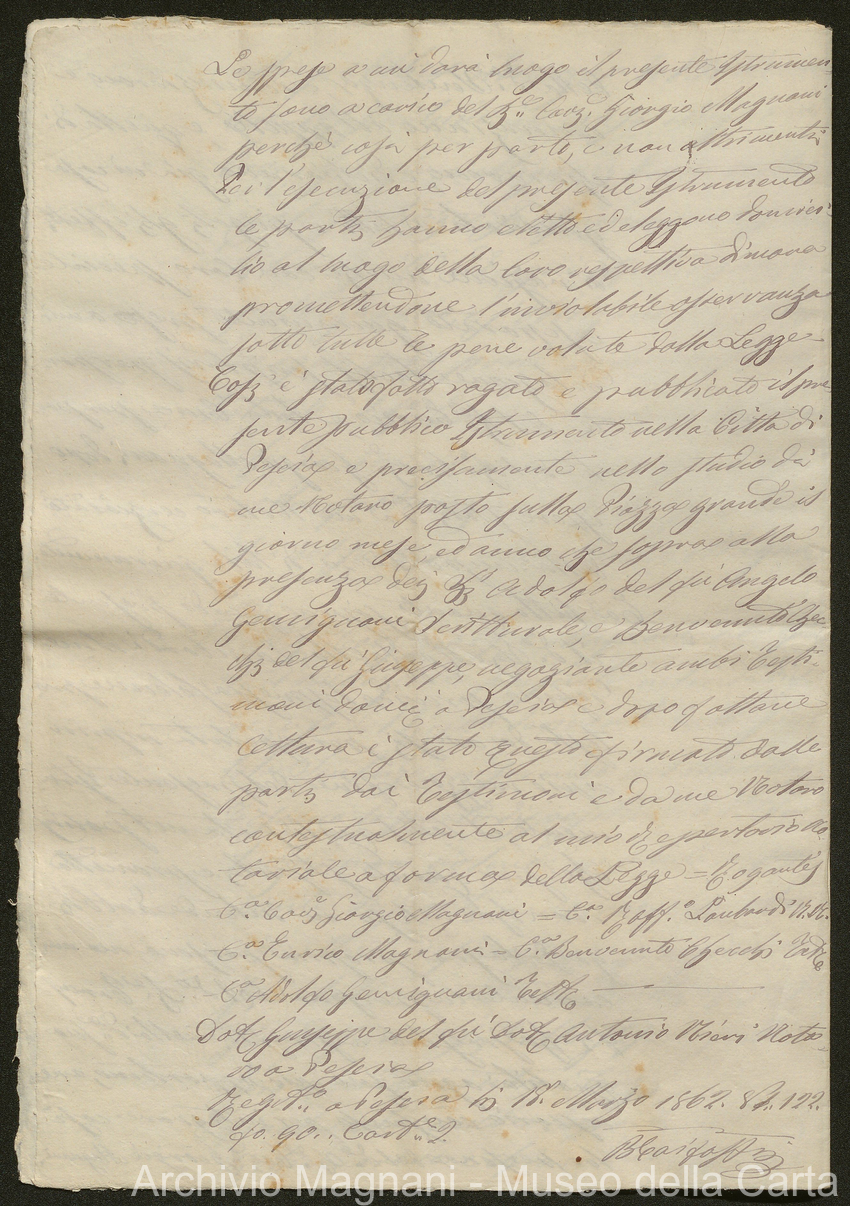 Le spese a cui darà luogo il presente Istrumen-
to sono a carico del Sig.r Cav.r Giorgio Magnani
perché così per patto, e non altrimenti
Per l'esecuzione del presente Istrumento
le parti hanno eletto ed eleggono domici-
lio al luogo della loro respettiva dimora
promettendone l'inviolabile osservanza
sotto tutte le pene volute dalla Legge-
Così è stato fatto rogato e pubblicato il pre
sente pubblico Istrumento nella Città di
Pescia e precisamente nello studio di
me Notaro posto sulla Piazza grande il
giorno mese, ed anno che sopra alla
presenza dei SS.i Adolfo del fù Angelo
Gemignani Scritturale, e Benvenuto Chec
chi del fù Giuseppe, negoziante ambi Testi-
moni domici a Pescia e dopo fattane
lettura è stato questo firmato dalle
parti dai Testimoni e da me Notaro
contestualmente al mio Repertorio No
tariale a forma della Legge = Rogantes
C.o Cav.r Giorgio Magnani = C.o Raff.o Lombardi
C.o Enrico Magnani = C.o Benvenuto Checchi Teste
C.o Adolfo Gemignani Teste
Dott. Giuseppe del fù Dott. Antonio Nieri Nota-
ro a Pescia
Reg.to a Pescia li 18. Marzo 1862. 122.
fo. 90.. Cart.e 2.
Archivio Magnani - Museo della Carta